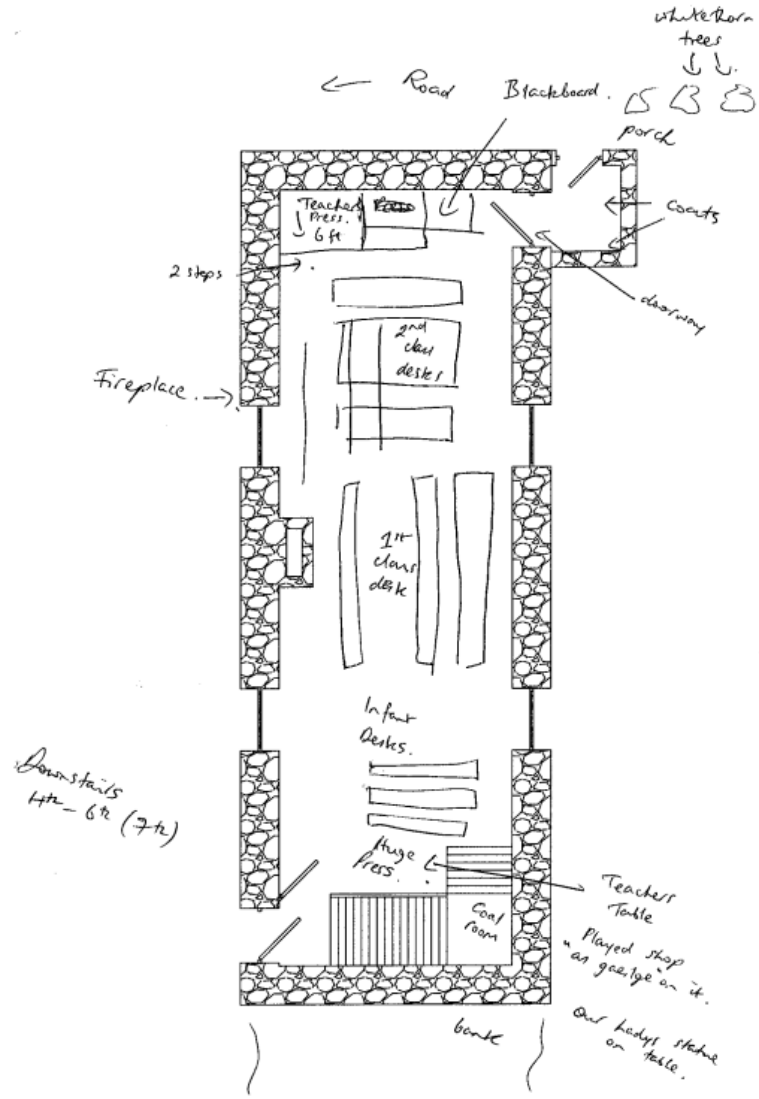 whitethorn
trees
Road
Blackboard.
porch
Teachers
Press.
6 ft
Coats
2 steps
doorway
2nd
class
desks
Fireplace.
1st
class
desk
Infant
Desks.
Downstairs
4th - 6th (7th)
Huge
Press.
Coal
room
Teachers
Table
Played shop
"as gaeilge" on it.
Our Ladys statue
on table.
bank